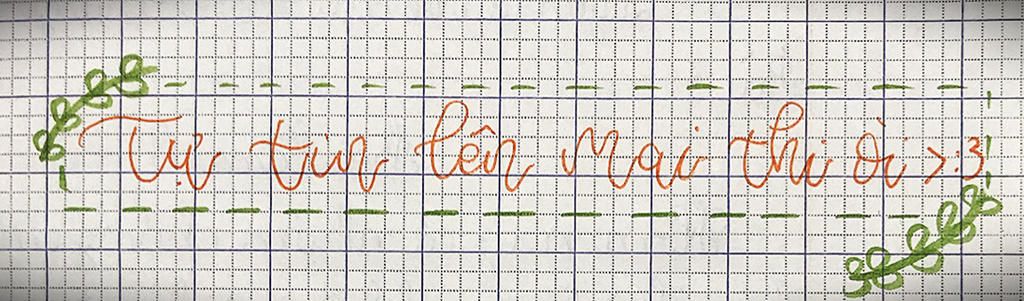 Tự tin lên Mai thi òi >:3